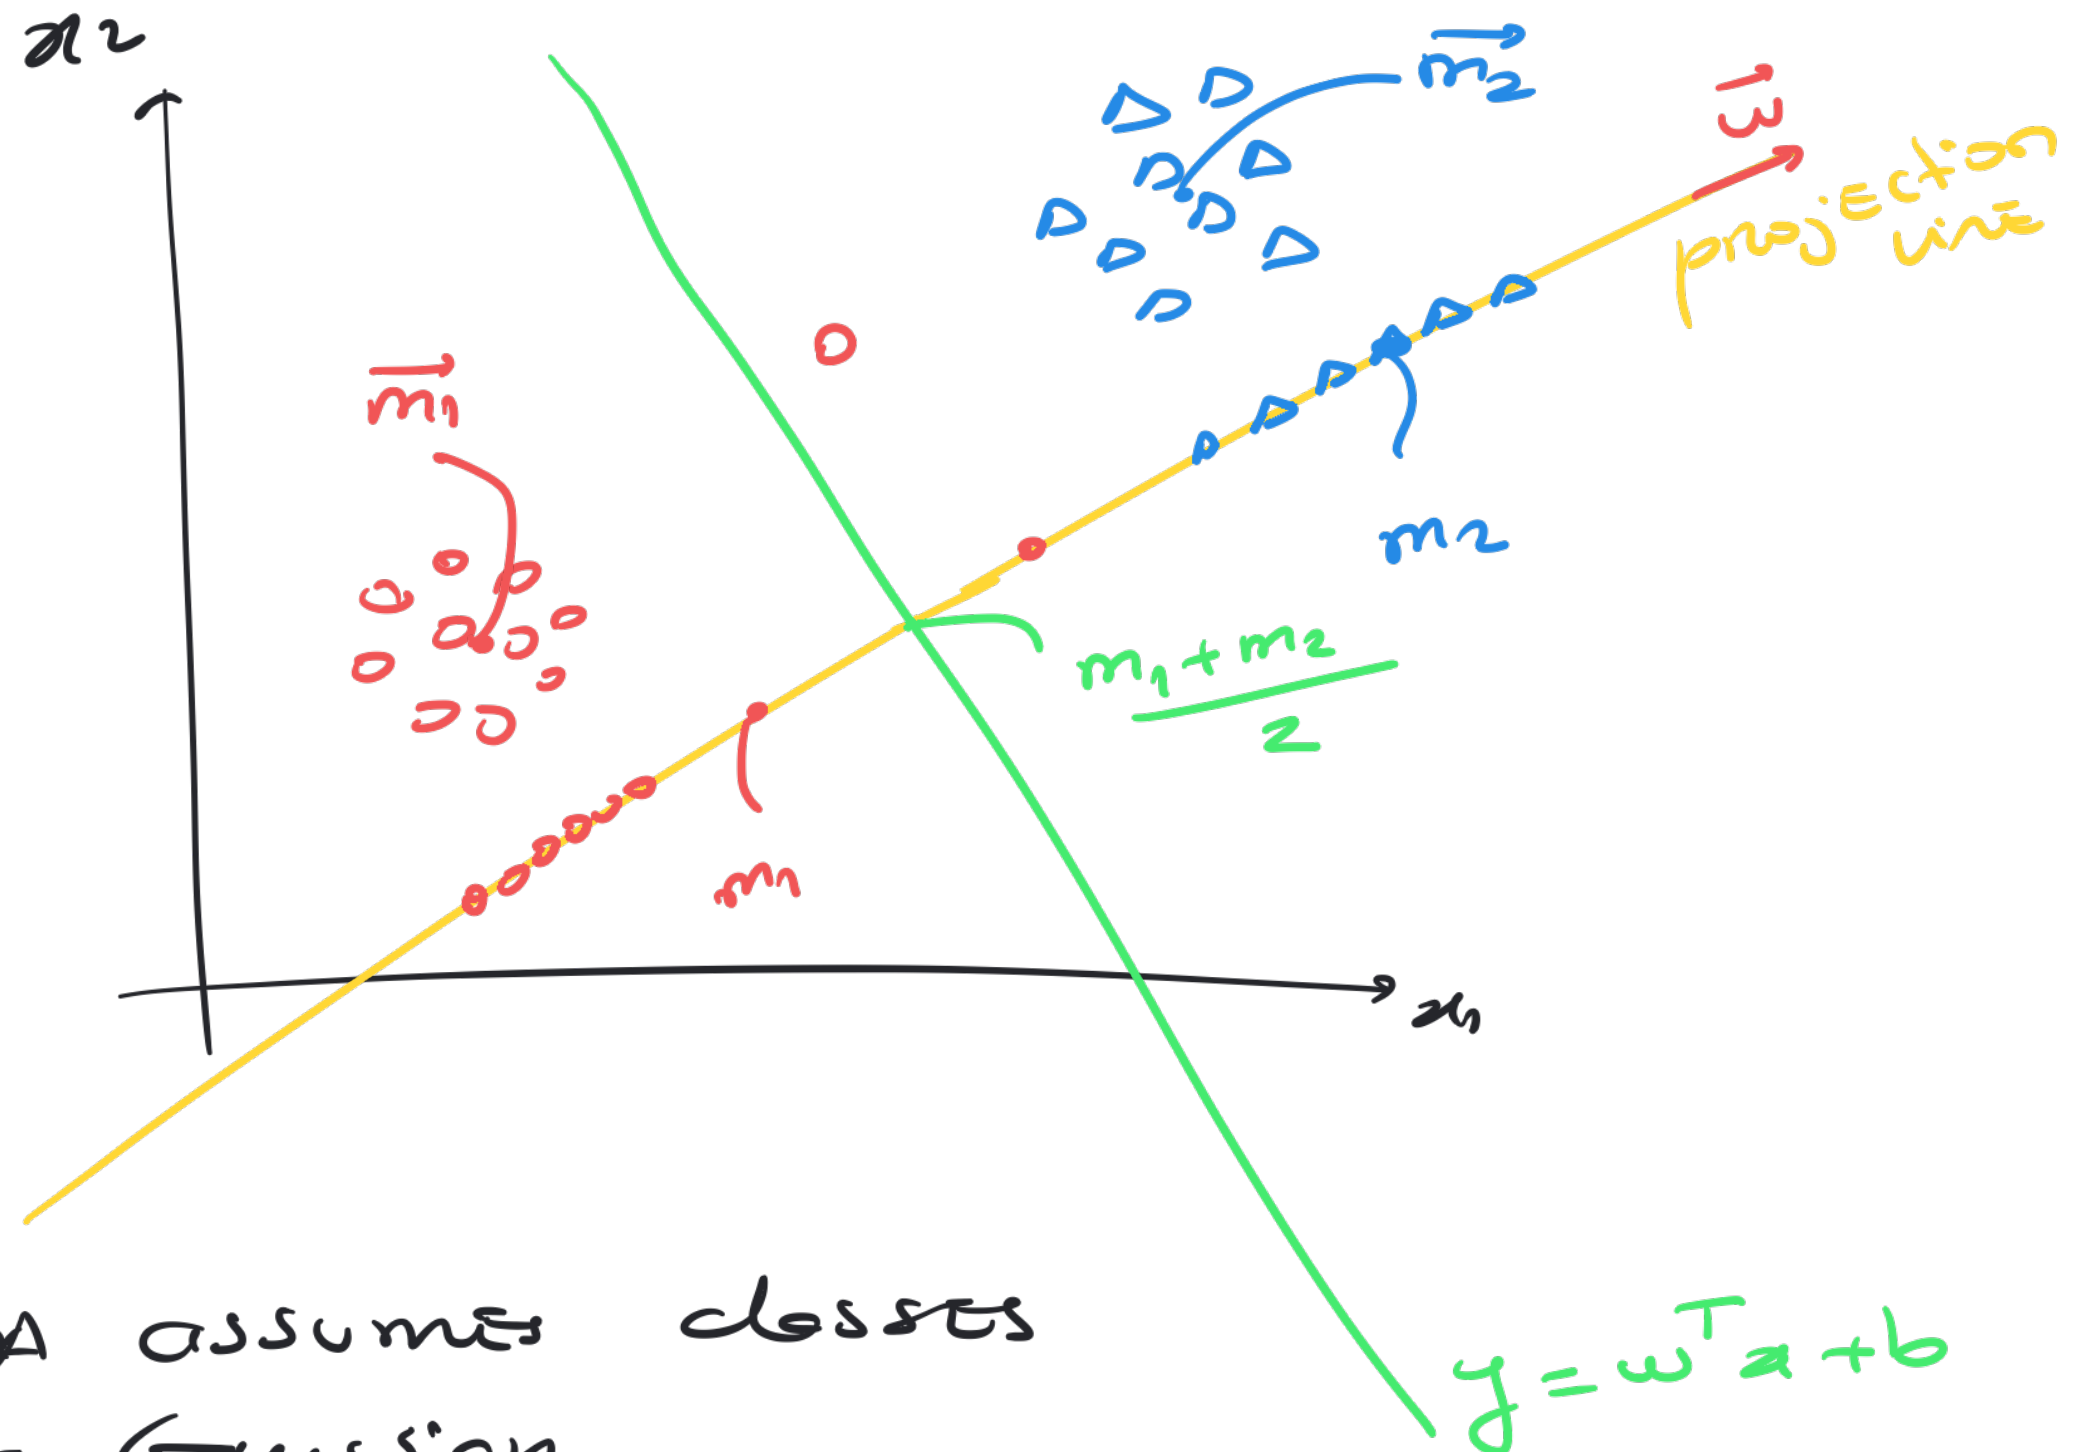 x2
m2
w
projection
line
m1
m2
m1 + m2
2
m1
x1
A assumes classes
y = wᵀx + b